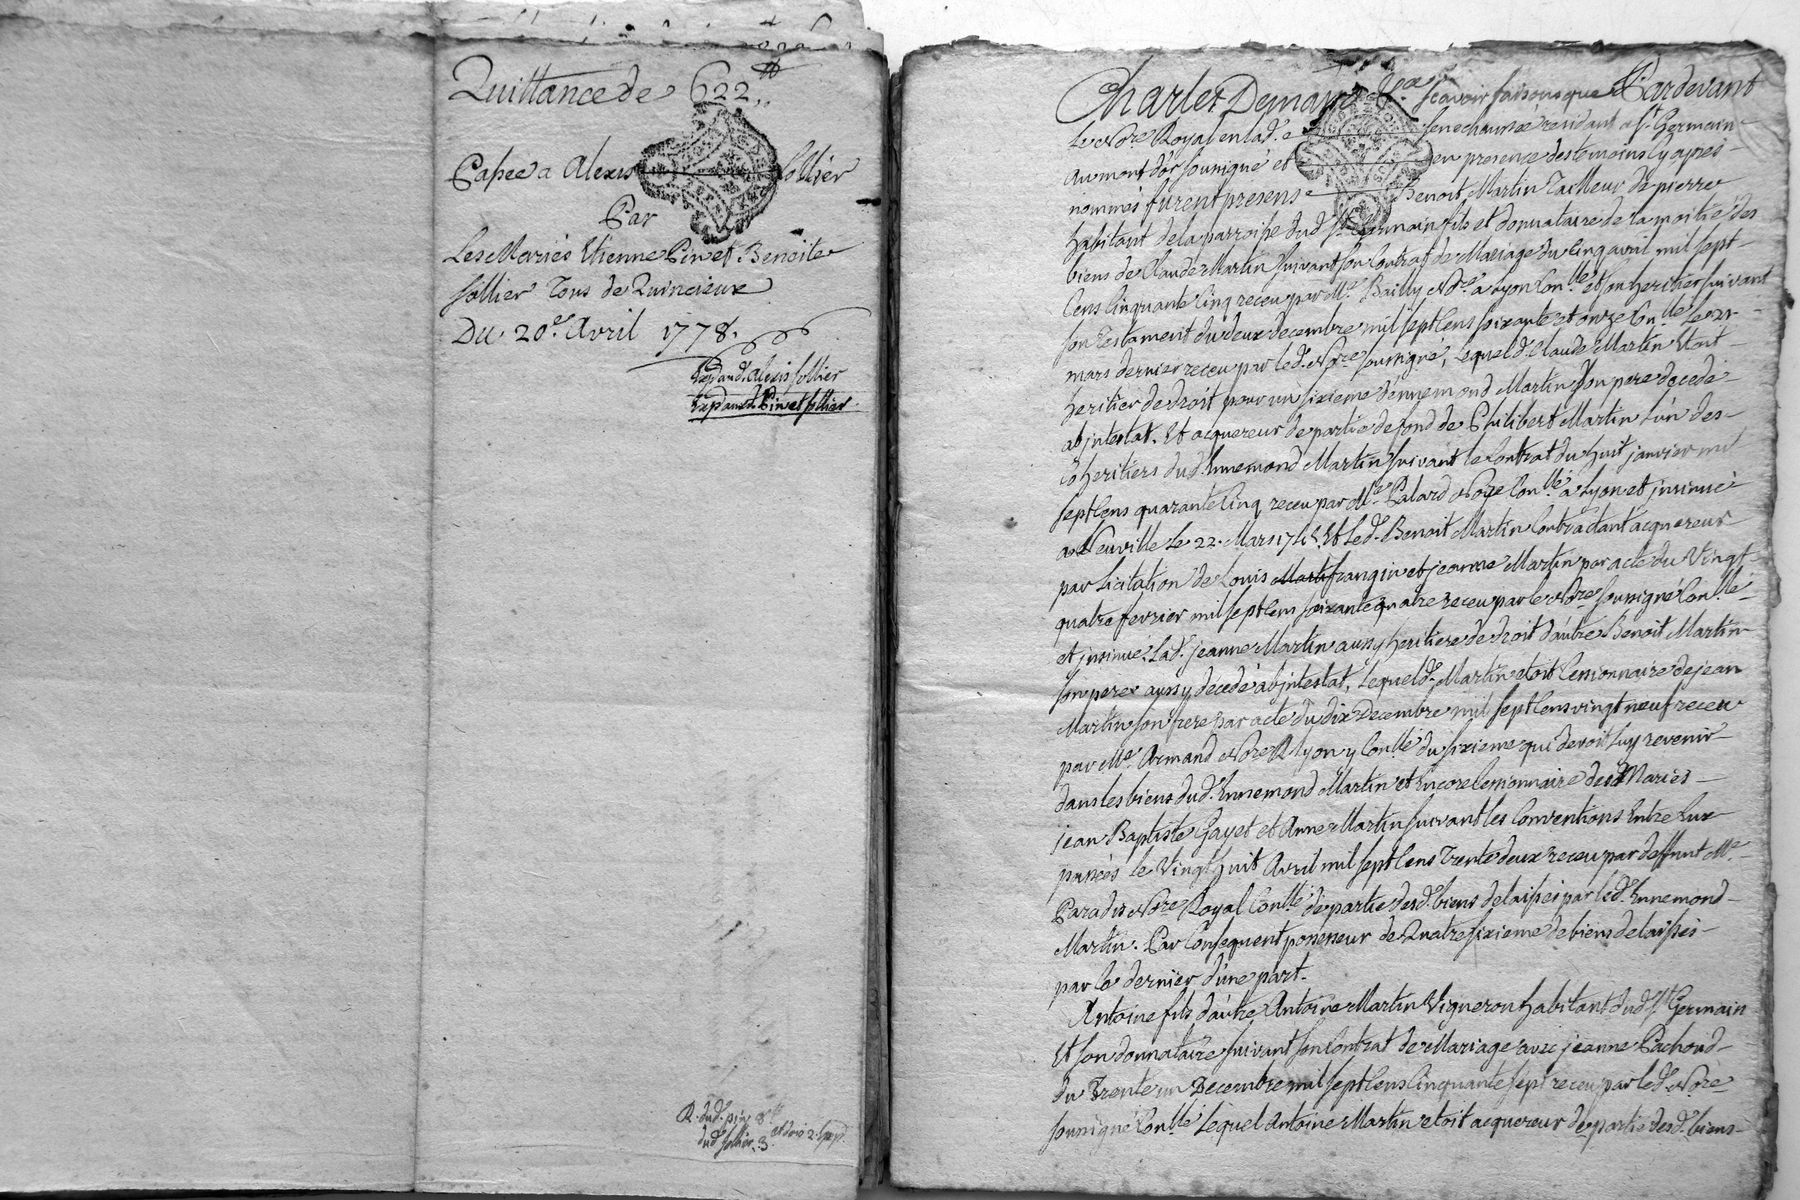 Quittance de 622 ₶
Passée a Alexis Sollier
Par
Les Mariés Etienne Pin et Benoite
Sollier Tous de Quincieux
Du 20e Avril 1778.
Exp aud. Alexis Sollier
Exp aux d. Pin et Sollier
R. dud. pin 8
dud sollier 3
Charles Demans &ca scavoir faisons que Pardevant
Le Nore Royal en lad. senechaussée residant a St. Germain
au mont d'or soussigné et en presence des temoins cy apres
nommés furent presens Benoit Martin Tailleur de pierre
habitant de la parroisse dud St. Germain fils et donnataire de la moitié des
biens de Claude Martin suivant son Contrat de Mariage du Cinq avril mil sept
Cens Cinquante Cinq receu par Me. Bailly Nore a Lyon Conllé et son heritier suivant
son Testament du deux decembre mil sept Cens soixante et onze Conllé Le
mars dernier receu par led. Nore soussigné, Lequel d. Claude Martin Etoit
heritier de droit pour un sixieme d'ennemond Martin son pere decedé
abintestat. Et acquereur de partie de fond de Philibert Martin L'un des
coheritiers dud Ennemond Martin suivant le Contrat du huit janvier mil
sept Cens quarante Cinq receu par Me Palard Nore Conllé a Lyon et insinué
a Neuville Le 22. Mars 1745. Et Led. Benoit Martin Contractant acquereur
par Licitation de Louis frangin et jeanne Martin par acte du Vingt
quatre fevrier mil sept Cens soixante quatre receu par le Nore soussigné Conllé
et insinué. Lad. jeanne Martin aussy heritiere de droit d'autre Benoit Martin
son pere aussy decedé abintestat, Lequel d. Martin etoit Cessionnaire de jean
Martin son frere par acte du dix Decembre mil sept Cens vingt neuf receu
par Me. Armand Nore A Lyon y Conllé du sixieme qui devoit Luy revenir
dans les biens dud. Ennemond Martin et Encore Cessionnaire desd Mariés
jean Baptiste Gayet et Anne Martin suivant les Conventions Entre Eux
passées le Vingt huit Avril mil sept Cens Trente deux receu par deffunt Me.
Paradis Nore Royal Conllé de partie desd. biens delaissés par led. Ennemond
Martin. Par Consequent possesseur de Quatre sixieme de biens delaissés
par Ce dernier d'une part.
Antoine fils d'autre Antoine Martin Vigneron habitant dud St Germain
Et son donnataire suivant son Contrat de Mariage avec jeanne Pachoud
du Trente un Decembre mil sept Cens Cinquante sept receu par led. Nore
soussigné Conllé Lequel Antoine Martin etoit acquereur de partie desd. biens